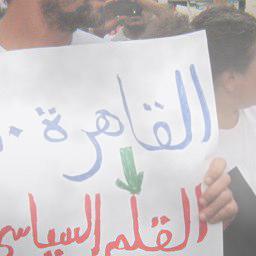 القاهرة
القلم السياسي